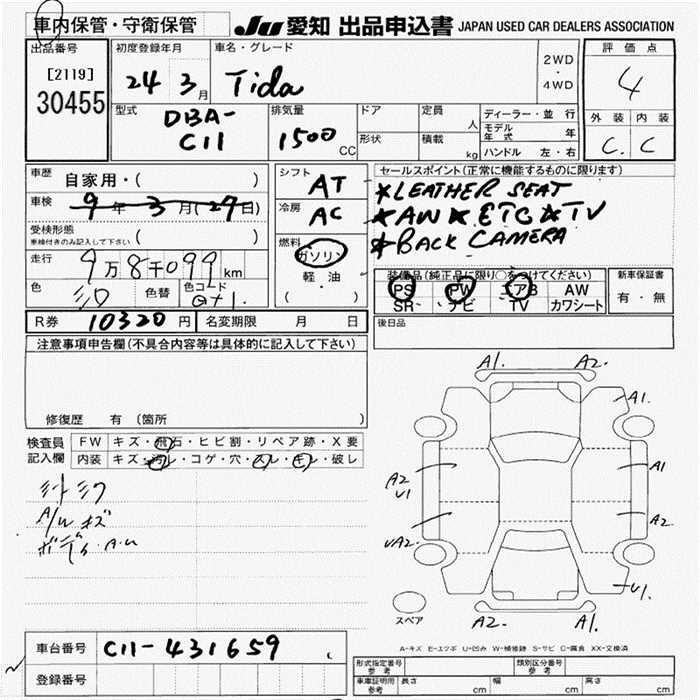 車内保管・守衛保管 JU 愛知 出品申込書 JAPAN USED CAR DEALERS ASSOCIATION
出品番号 初度登録年月 車名・グレード 2WD ・ 4WD 評価点
[2119] 24 3月 Tida 4
30455
型式 DBA-C11 排気量 1500 CC ドア 定員 人 ディーラー・並行
形状 積載 kg モデル年式 年
ハンドル 左・右
外装 内装
C. C
車歴 自家用・( )
車検 9年3月(27日)
受検形態 車検付きのみ記入して下さい ( )
走行 9万8千099km
色 シロ 色替 色コード
R券 10320円 名変期限 月 日
シフト AT
冷房 AC
燃料 ガソリン
軽・油
( )
セールスポイント(正常に機能するものに限ります)
*LEATHER SEAT
*AW *ETC *TV
*BACK CAMERA
装備品(純正品に限り○をつけてください) 新車保証書
PS PW エアB AW 有・無
SR ナビ TV カワシート
後日品
注意事項申告欄(不具合内容等は具体的に記入して下さい)
修復歴 有 (箇所 )
検査員記入欄 FW キズ・飛石・ヒビ割・リペア跡・X要
内装 キズ・汚レ・コゲ・穴・スレ・キレ・破レ
A/W キズ
A1. A2.
A1.
A2 U1 A1
A2.
U1.
A2. A1.
スペア
A-キズ E-エクボ U-凹み W-補修跡 S-サビ C-腐食 XX-交換済
車台番号 C11-431659
登録番号
形式指定番号 参考 類別区分番号 参考
車庫証明用 参考 長さ cm 幅 cm 高さ cm